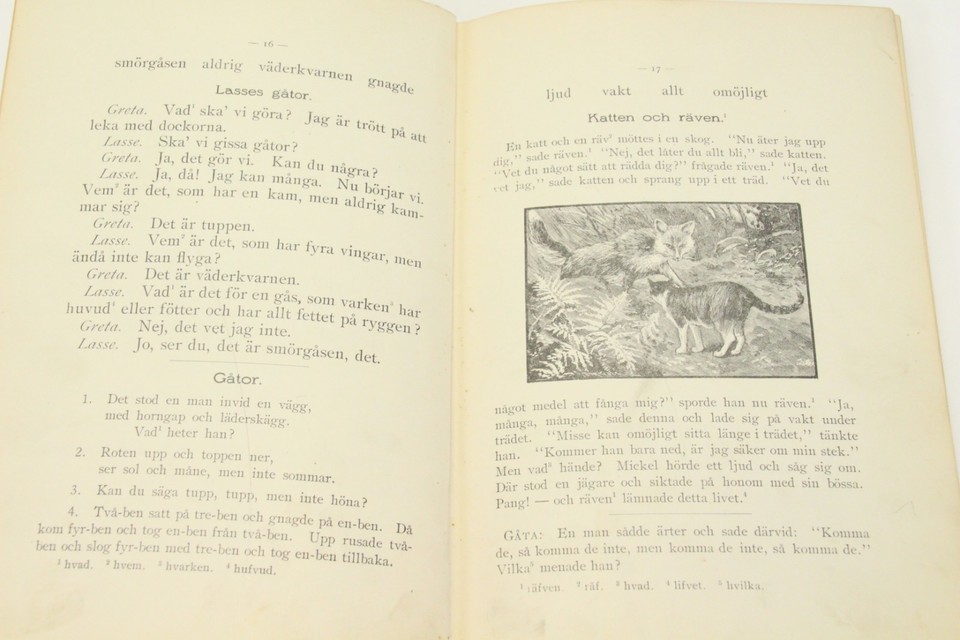 — 16 —
smörgåsen aldrig väderkvarnen gnagde
Lasses gåtor.
Greta. Vad¹ ska' vi göra? Jag är trött på att
leka med dockorna.
Lasse. Ska' vi gissa gåtor?
Greta. Ja, det gör vi. Kan du några?
Lasse. Ja, då! Jag kan många. Nu börjar vi.
Vem² är det, som har en kam, men aldrig kam-
mar sig?
Greta. Det är tuppen.
Lasse. Vem² är det, som har fyra vingar, men
ändå inte kan flyga?
Greta. Det är väderkvarnen.
Lasse. Vad¹ är det för en gås, som varken³ har
huvud⁴ eller fötter och har allt fettet på ryggen?
Greta. Nej, det vet jag inte.
Lasse. Jo, ser du, det är smörgåsen, det.
Gåtor.
1. Det stod en man invid en vägg,
med horngap och läderskägg.
Vad¹ heter han?
2. Roten upp och toppen ner,
ser sol och måne, men inte sommar.
3. Kan du säga tupp, tupp, men inte höna?
4. Två-ben satt på tre-ben och gnagde på en-ben. Då
kom fyr-ben och tog en-ben från två-ben. Upp rusade två-
ben och slog fyr-ben med tre-ben och tog en-ben tillbaka.
¹ hvad. ² hvem. ³ hvarken. ⁴ hufvud.
— 17 —
ljud vakt allt omöjligt
Katten och räven.¹
En katt och en räv² möttes i en skog. "Nu äter jag upp
dig," sade räven.¹ "Nej, det låter du allt bli," sade katten.
"Vet du något sätt att rädda dig?" frågade räven.¹ "Ja, det
vet jag," sade katten och sprang upp i ett träd. "Vet du
något medel att fånga mig?" sporde han nu räven.¹ "Ja,
många, många," sade denna och lade sig på vakt under
trädet. "Misse kan omöjligt sitta länge i trädet," tänkte
han. "Kommer han bara ned, är jag säker om min stek."
Men vad³ hände? Mickel hörde ett ljud och såg sig om.
Där stod en jägare och siktade på honom med sin bössa.
Pang! — och räven¹ lämnade detta livet.⁴
GÅTA: En man sådde ärter och sade därvid: "Komma
de, så komma de inte, men komma de inte, så komma de."
Vilka⁵ menade han?
¹ räfven. ² räf. ³ hvad. ⁴ lifvet. ⁵ hvilka.